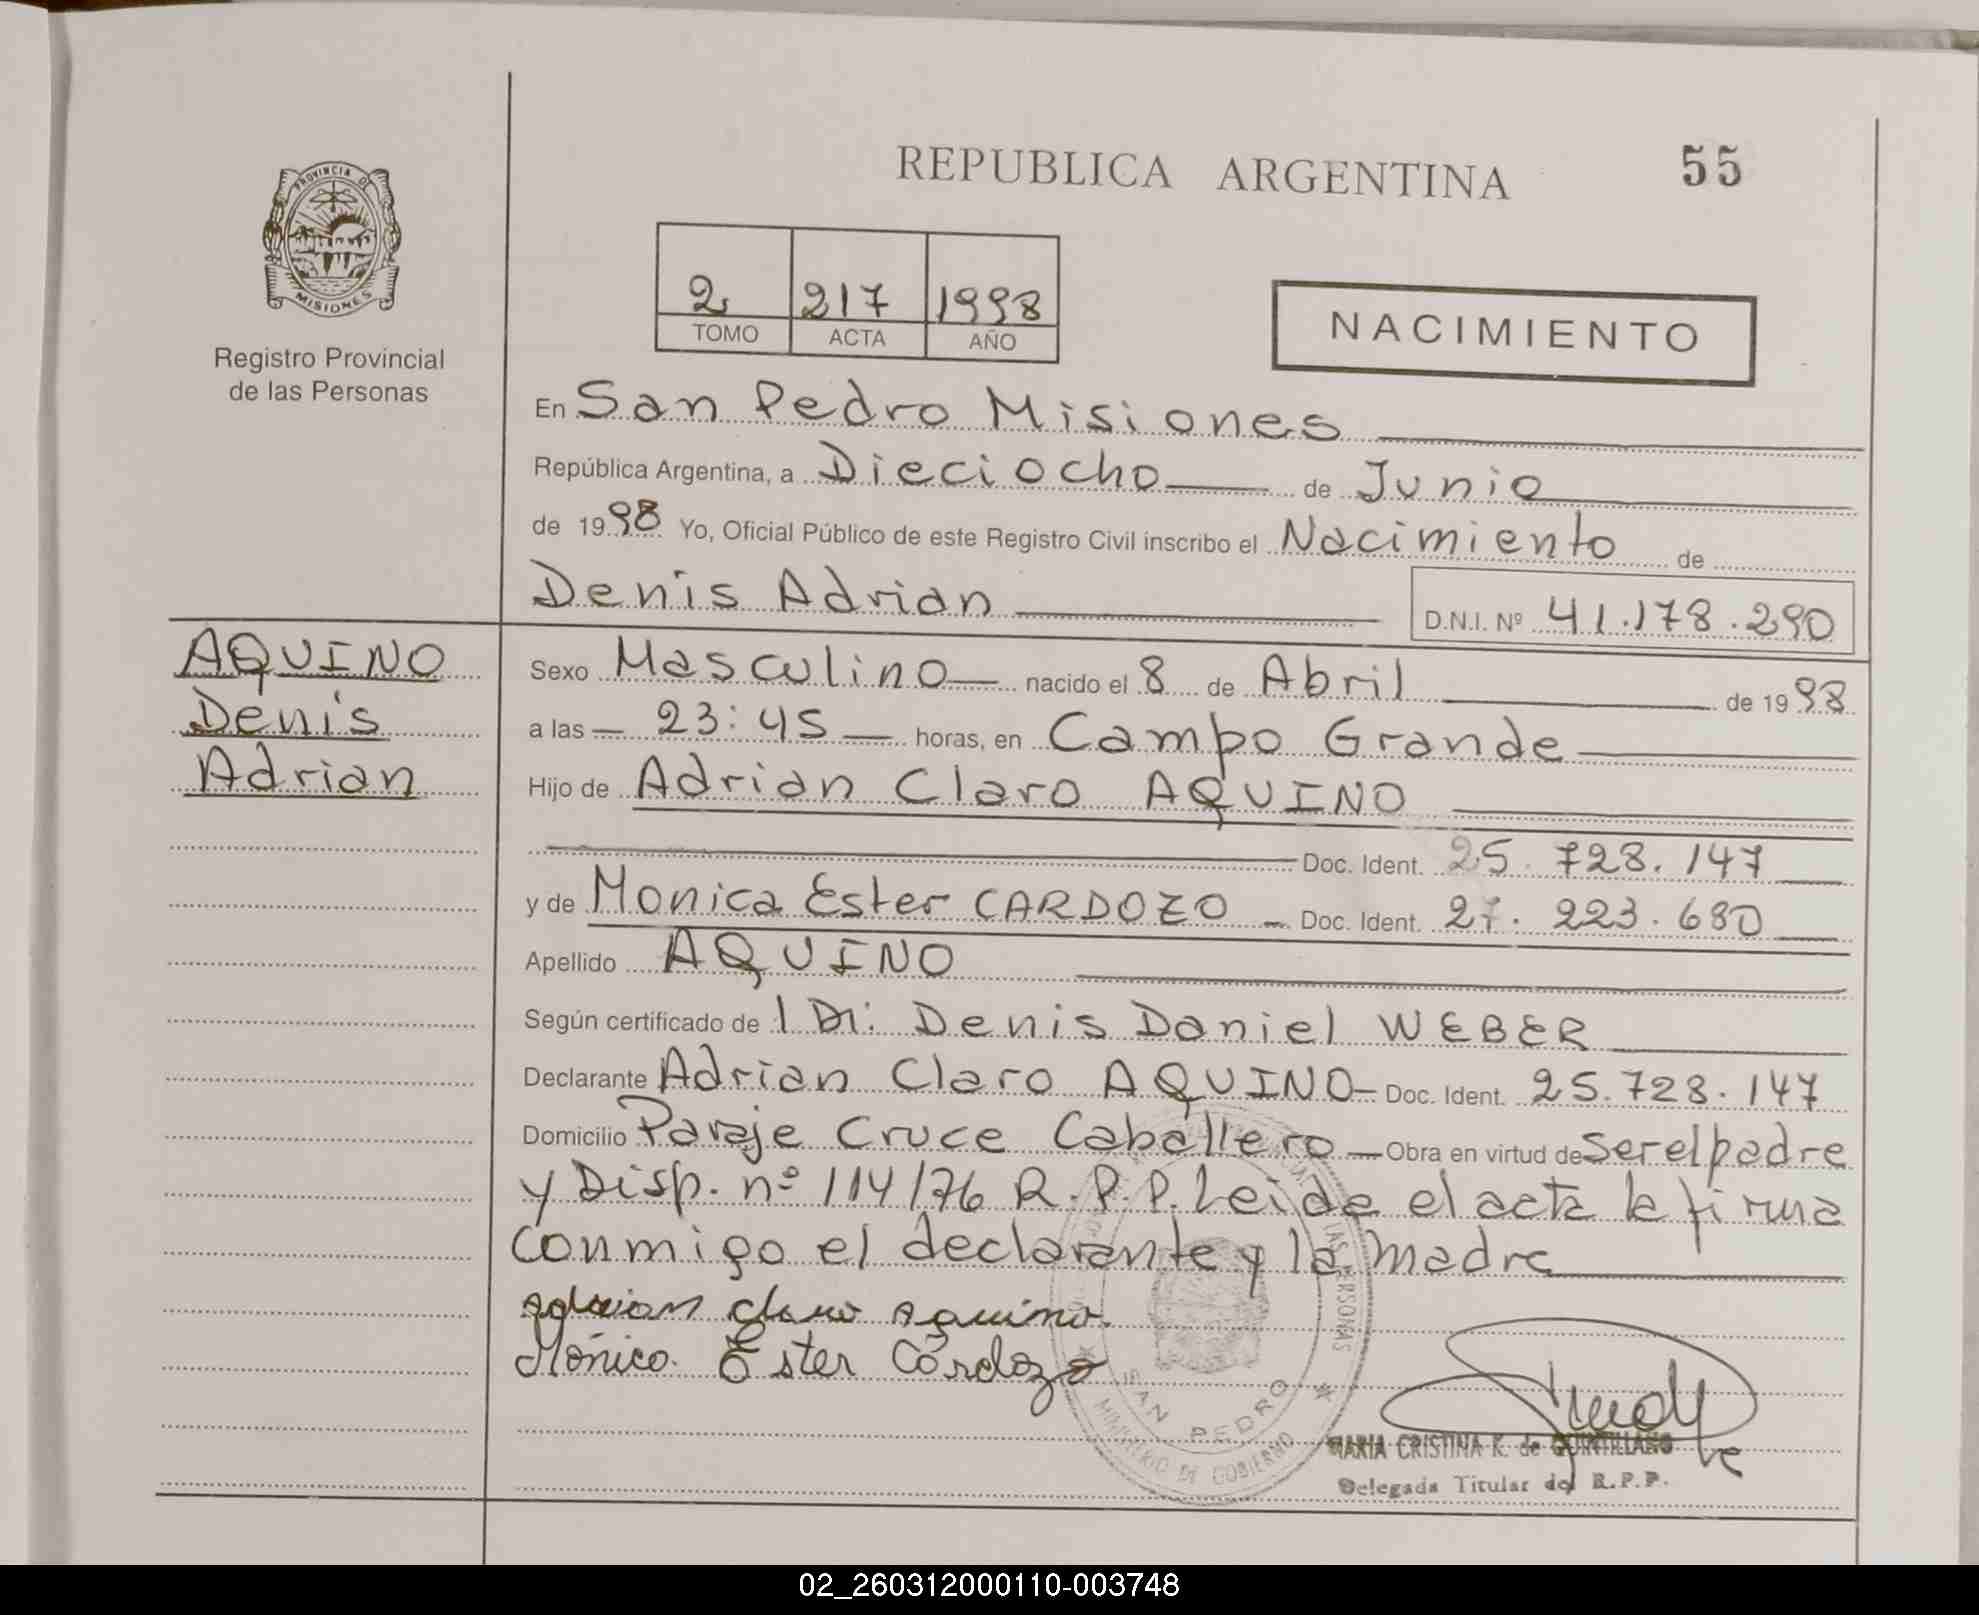 REPUBLICA ARGENTINA
55
PROVINCIA DE
MISIONES
Registro Provincial
de las Personas
2 217 1998
TOMO ACTA AÑO
NACIMIENTO
En San Pedro Misiones
República Argentina, a Dieciocho de Junio
de 1998 Yo, Oficial Público de este Registro Civil inscribo el Nacimiento de
Denis Adrian
D.N.I. Nº 41.178.290
AQUINO
Denis
Adrian
Sexo Masculino nacido el 8 de Abril de 1998
a las 23:45 horas, en Campo Grande
Hijo de Adrian Claro AQUINO
Doc. Ident. 25.728.147
y de Monica Ester CARDOZO Doc. Ident. 27.223.680
Apellido AQUINO
Según certificado de l Dr. Denis Daniel WEBER
Declarante Adrian Claro AQUINO Doc. Ident. 25.728.147
Domicilio Paraje Cruce Caballero Obra en virtud de ser el padre
y Disp. nº 114/76 R.P.P. Leida el acta la firma
conmigo el declarante y la madre
adrian claro aquino.
Mónica Ester Cardozo
SAN PEDRO
MINISTERIO DE GOBIERNO
MARIA CRISTINA K. de QUINTILLANO
Delegada Titular del R.P.P.
02_260312000110-003748